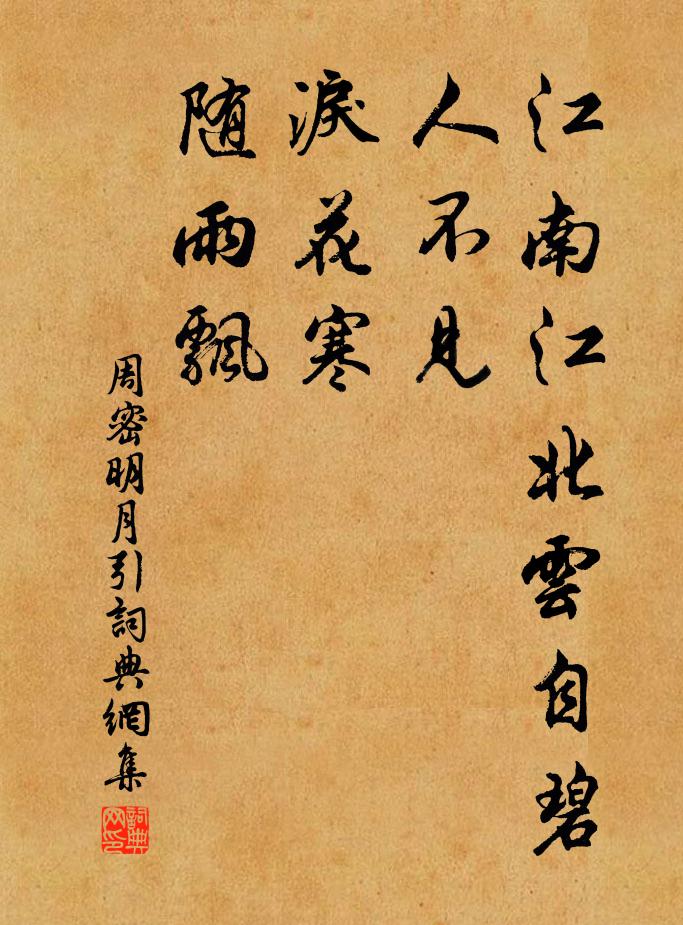 江南江北雲自碧
人不見
淚花寒
随雨飄
周密明月引詞典網集
詞典网印